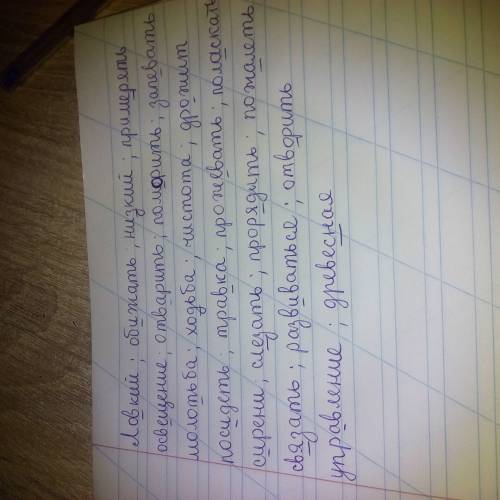 Ловкий; обижать; низкий; примерять
освещение; отварить; поморить; запевать
молотьба; ходьба; чистота; дрожит
посидеть; травка; прожевать; поласкать
сирени; слезать; прорядить; пожалеть
связать; развиваться; отворить
управление; древесная